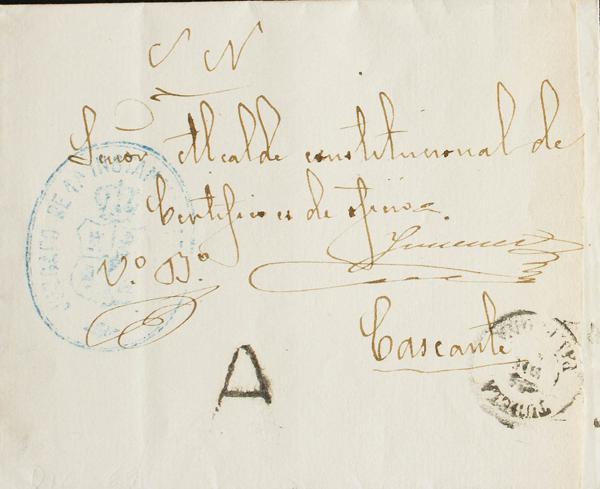 S N
Señor Alcalde constitucional de
Certificado de oficio
Jimenez
Vº Bº
Cascante
A
JUZGADO DE 1ª INSTANCIA
TUDELA